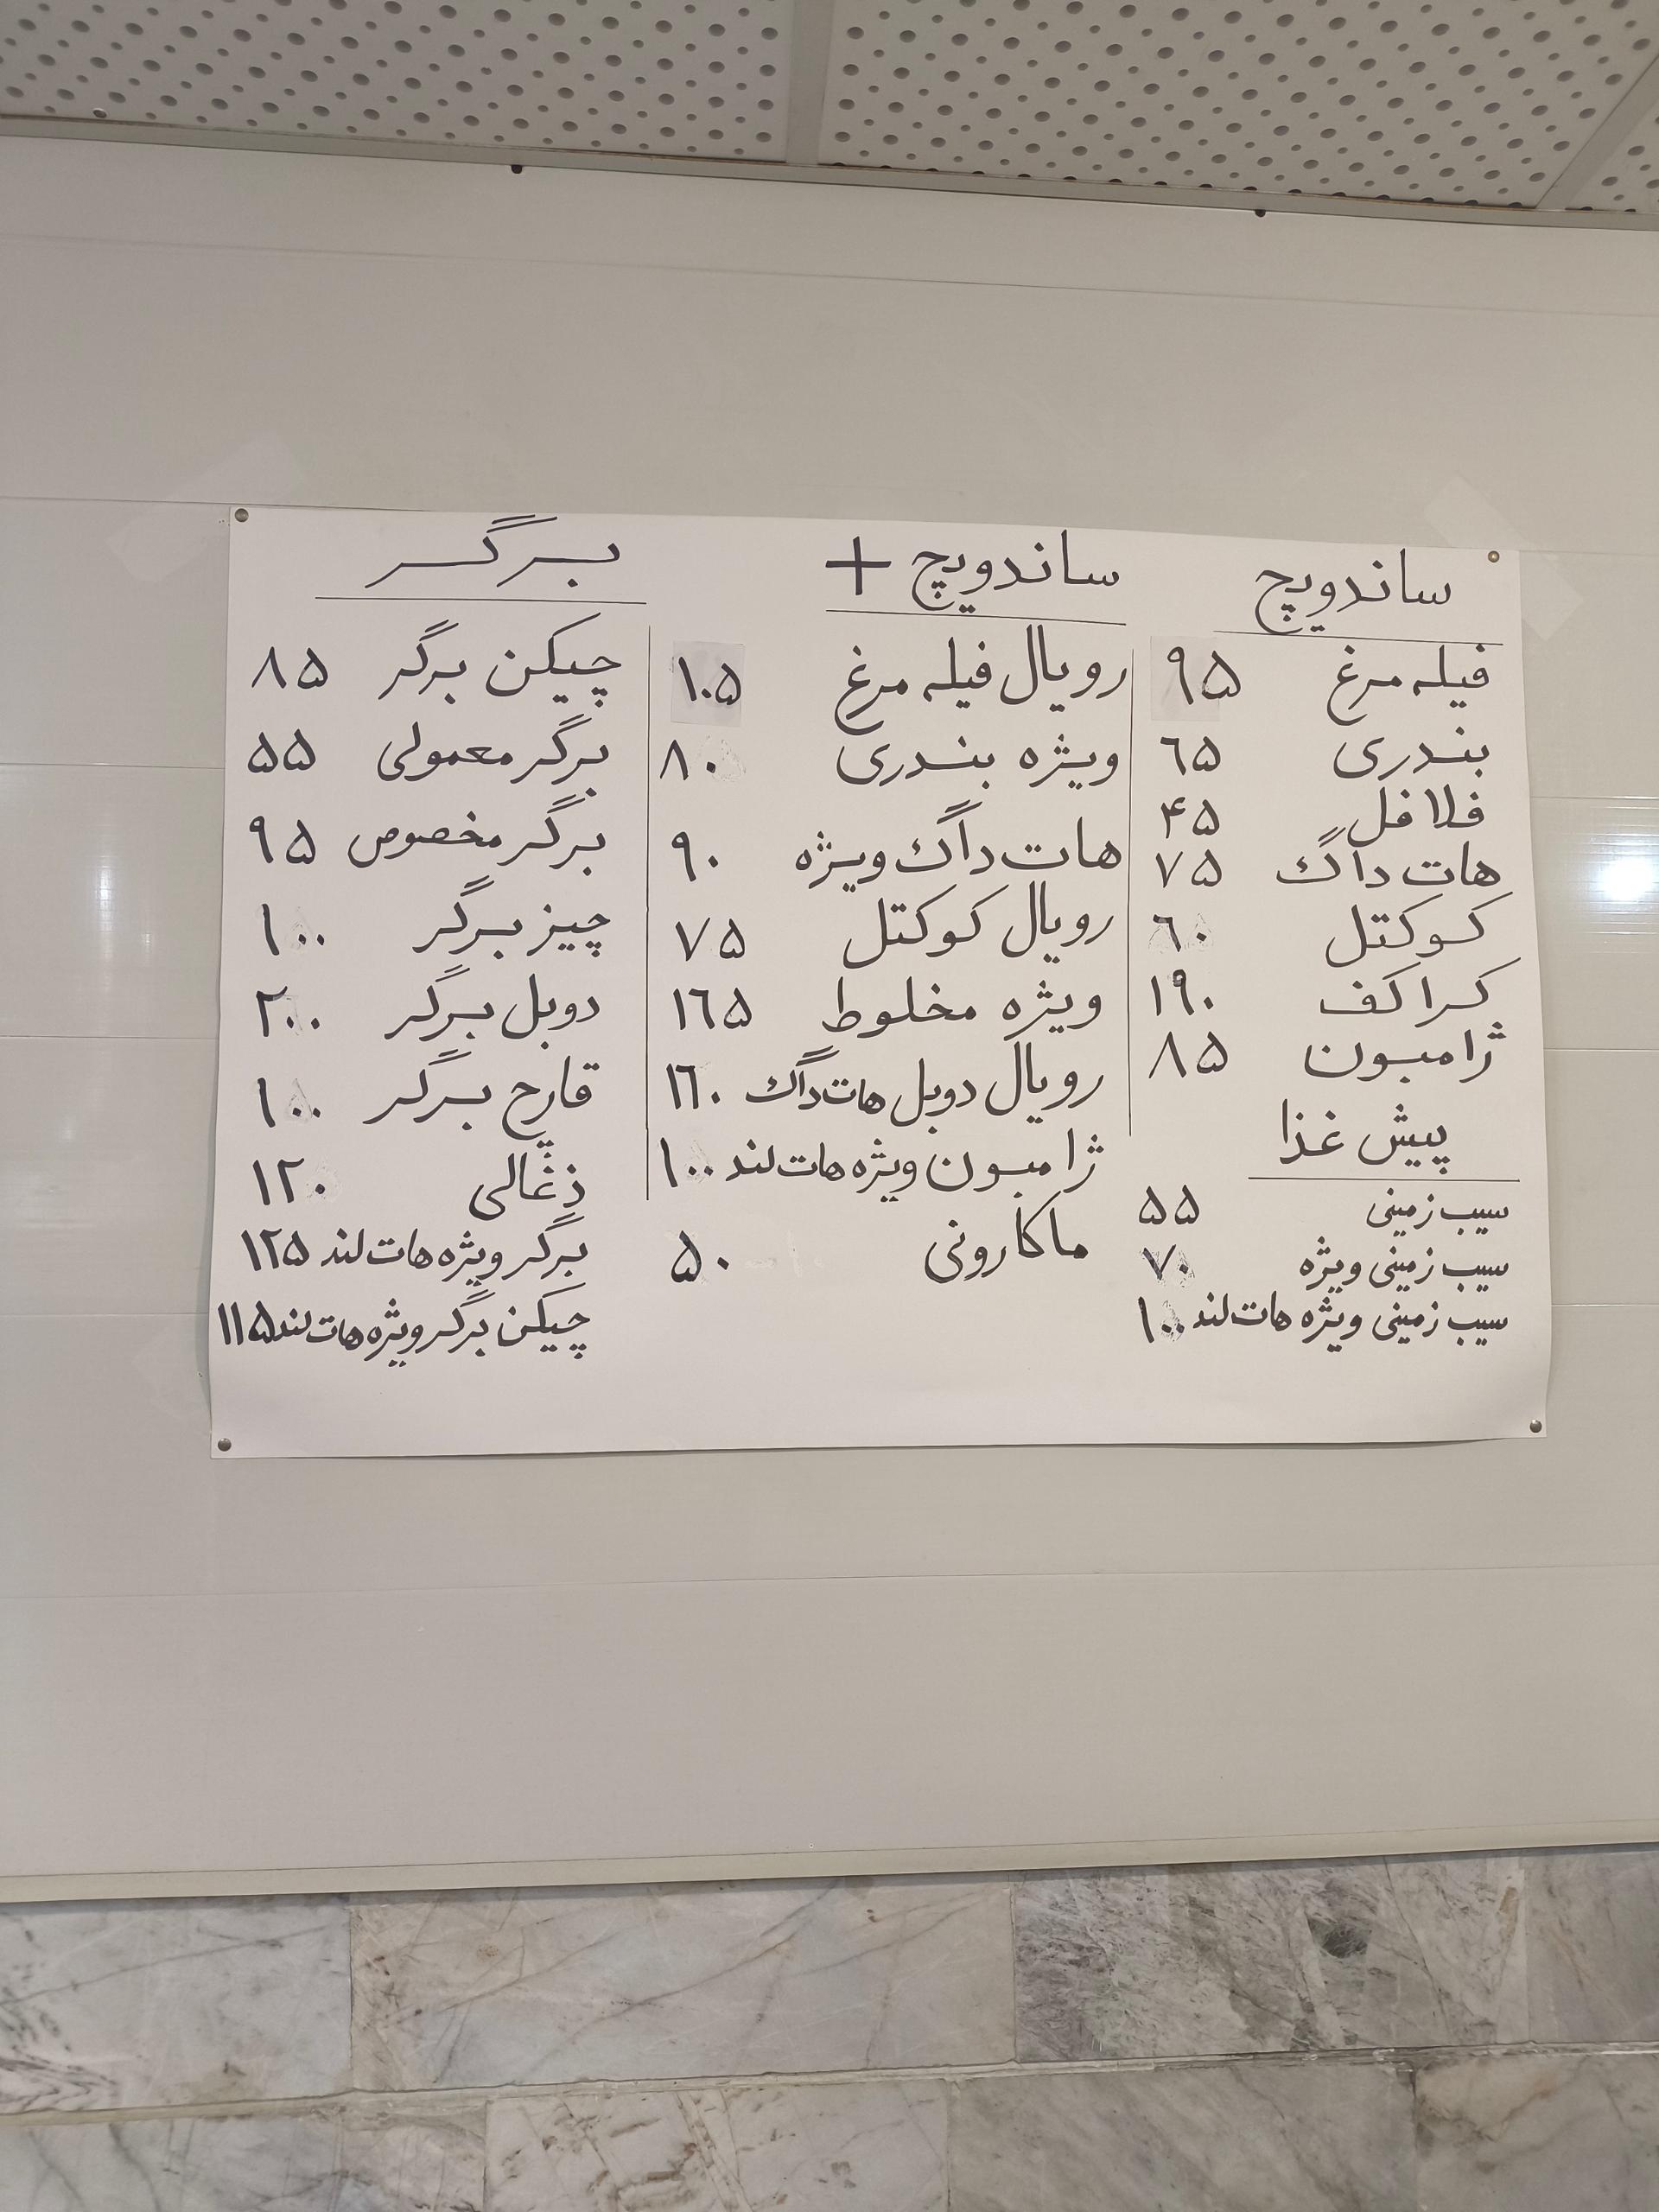 ساندویچ
فیله مرغ ۹۵
بندری ۶۵
فلافل ۴۵
هات داگ ۷۵
کوکتل ۶۰
کراکف ۱۹۰
ژامبون ۸۵
پیش غذا
سیب زمینی ۵۵
سیب زمینی ویژه ۷۰
سیب زمینی ویژه هات لند ۱۰۰
ساندویچ +
رویال فیله مرغ ۱۰۵
ویژه بندری ۸۰
هات داگ ویژه ۹۰
رویال کوکتل ۷۵
ویژه مخلوط ۱۶۵
رویال دوبل هات داگ ۱۶۰
ژامبون ویژه هات لند ۱۰۰
ماکارونی ۵۰
برگر
چیکن برگر ۸۵
برگر معمولی ۵۵
برگر مخصوص ۹۵
چیز برگر ۱۰۰
دوبل برگر ۲۰۰
قارچ برگر ۱۰۰
ذغالی ۱۲۰
برگر ویژه هات لند ۱۲۵
چیکن برگر ویژه هات لند ۱۱۵